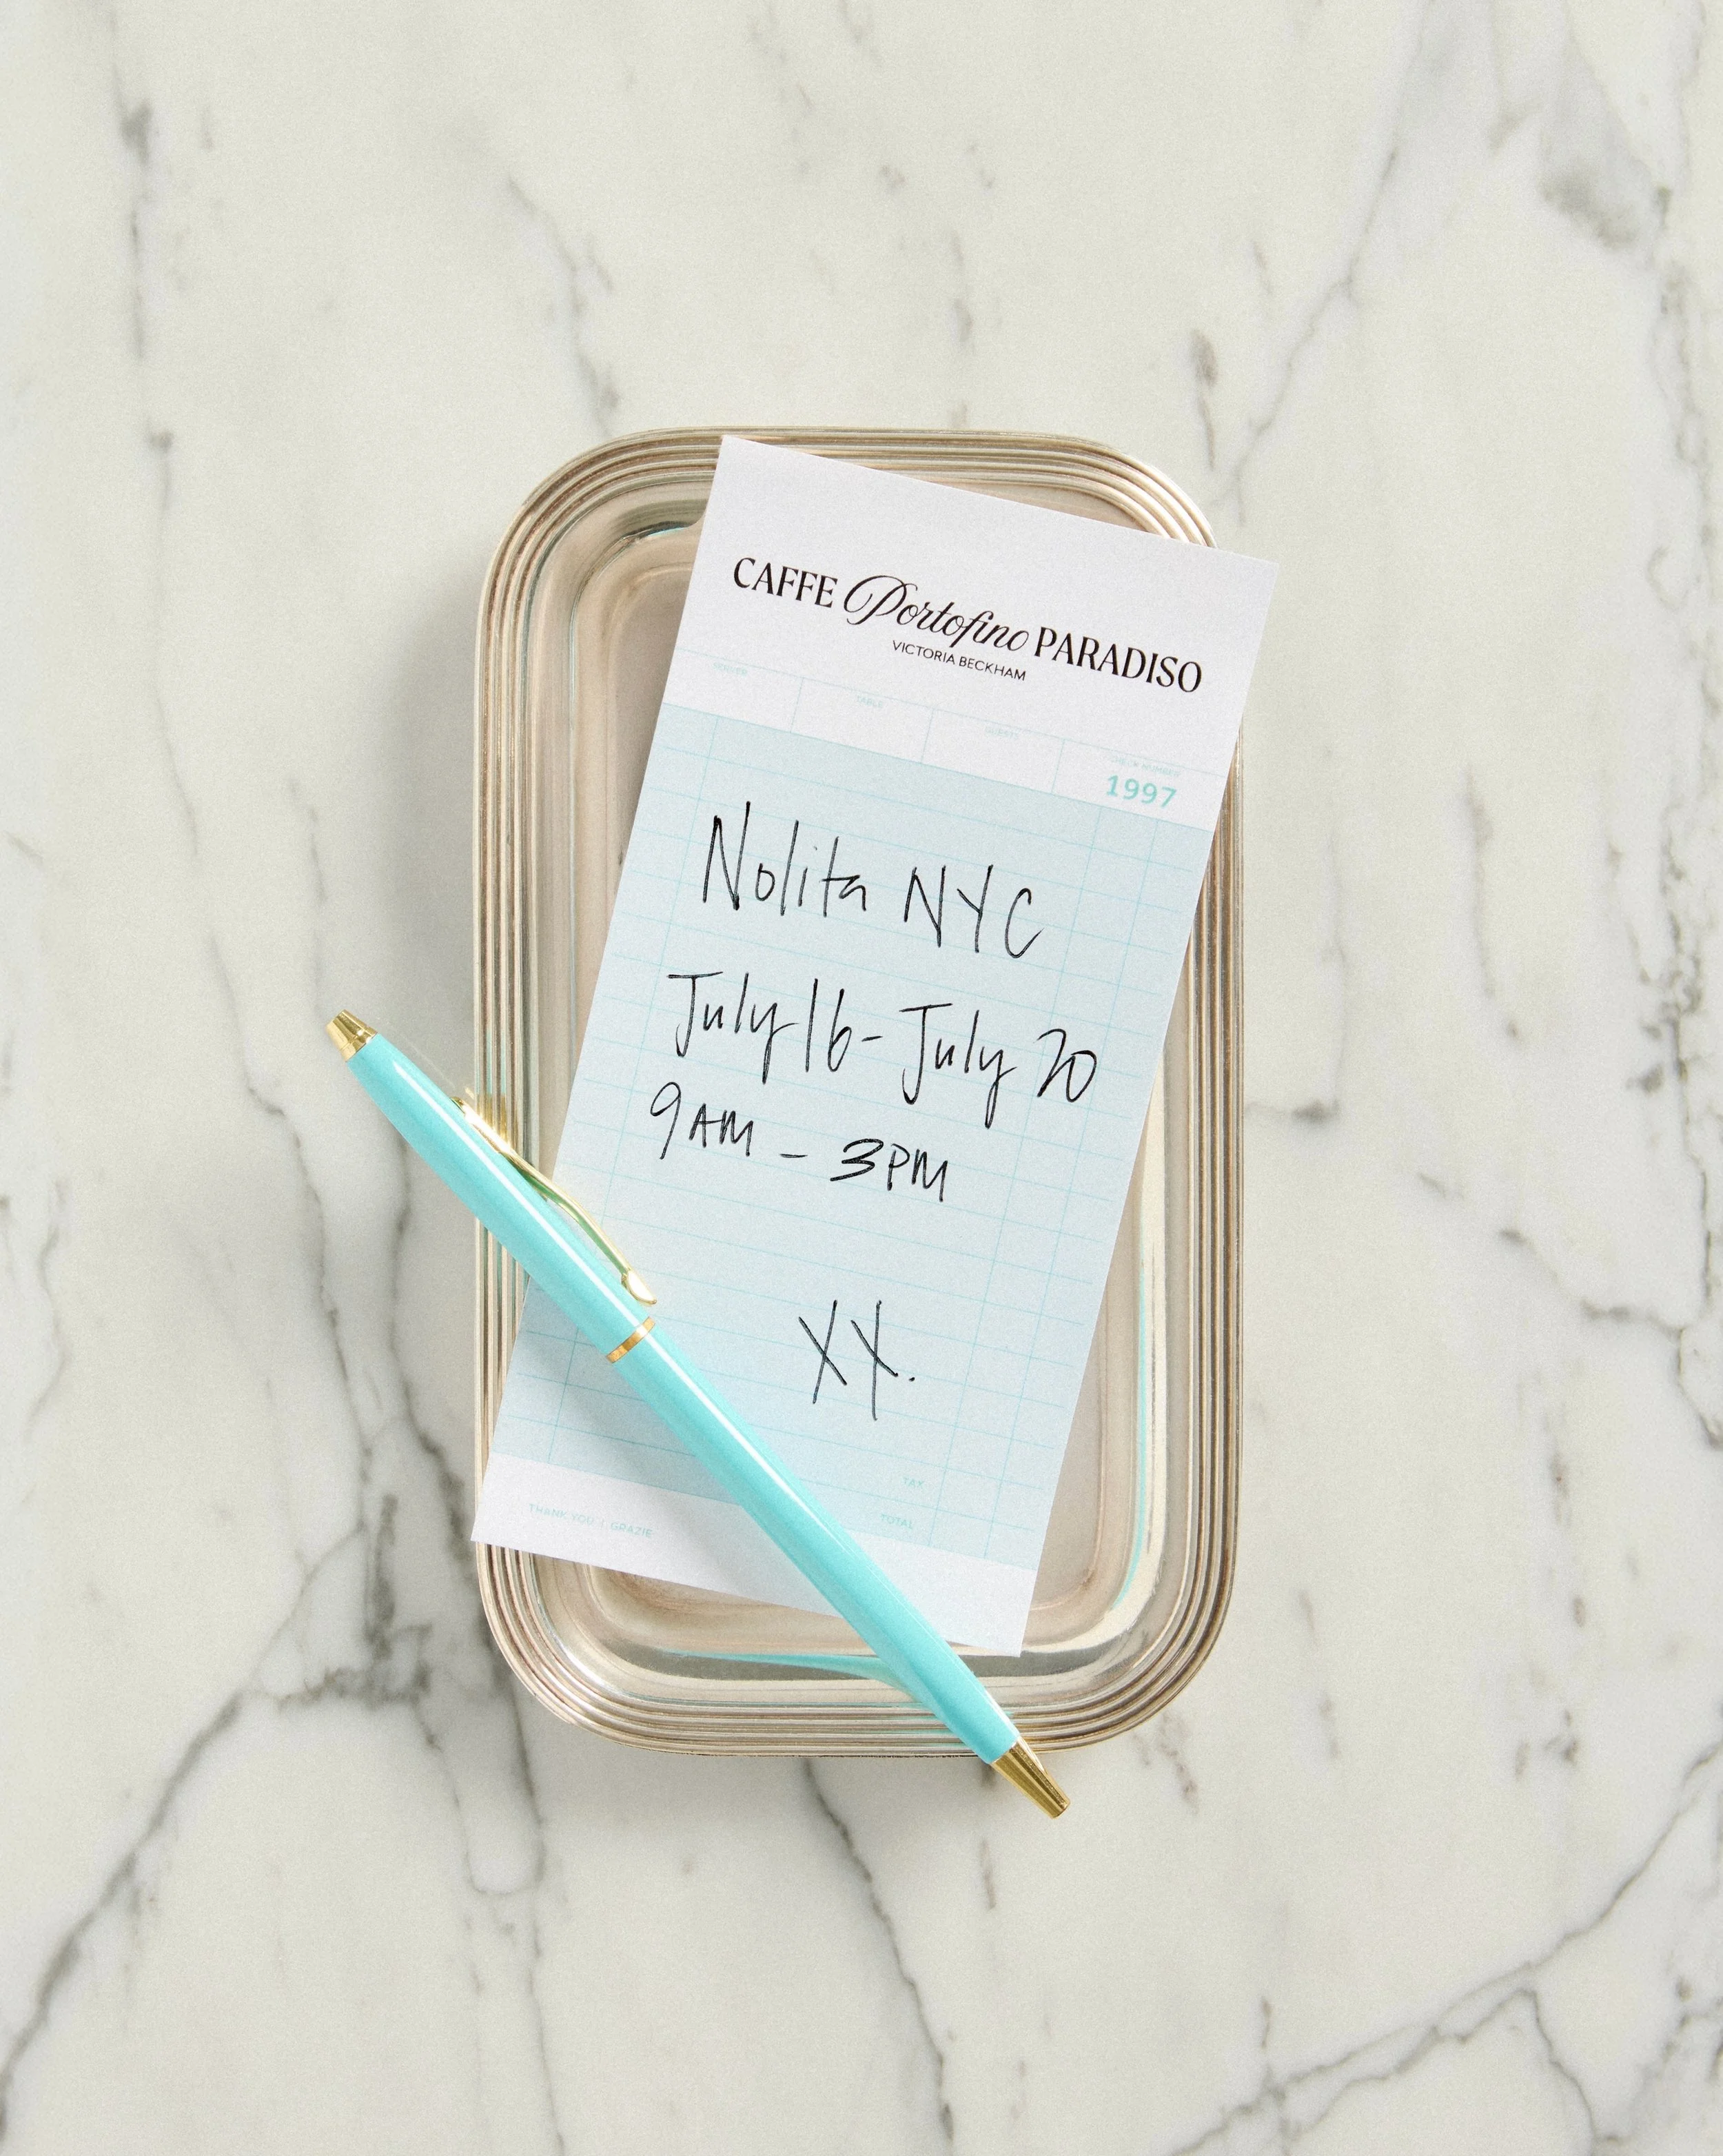 CAFFE Portofino PARADISO
VICTORIA BECKHAM
SERVER TABLE GUESTS CHECK NUMBER
1997
Nolita NYC
July 16 - July 20
9AM - 3PM
XX.
TAX
TOTAL
THANK YOU | GRAZIE